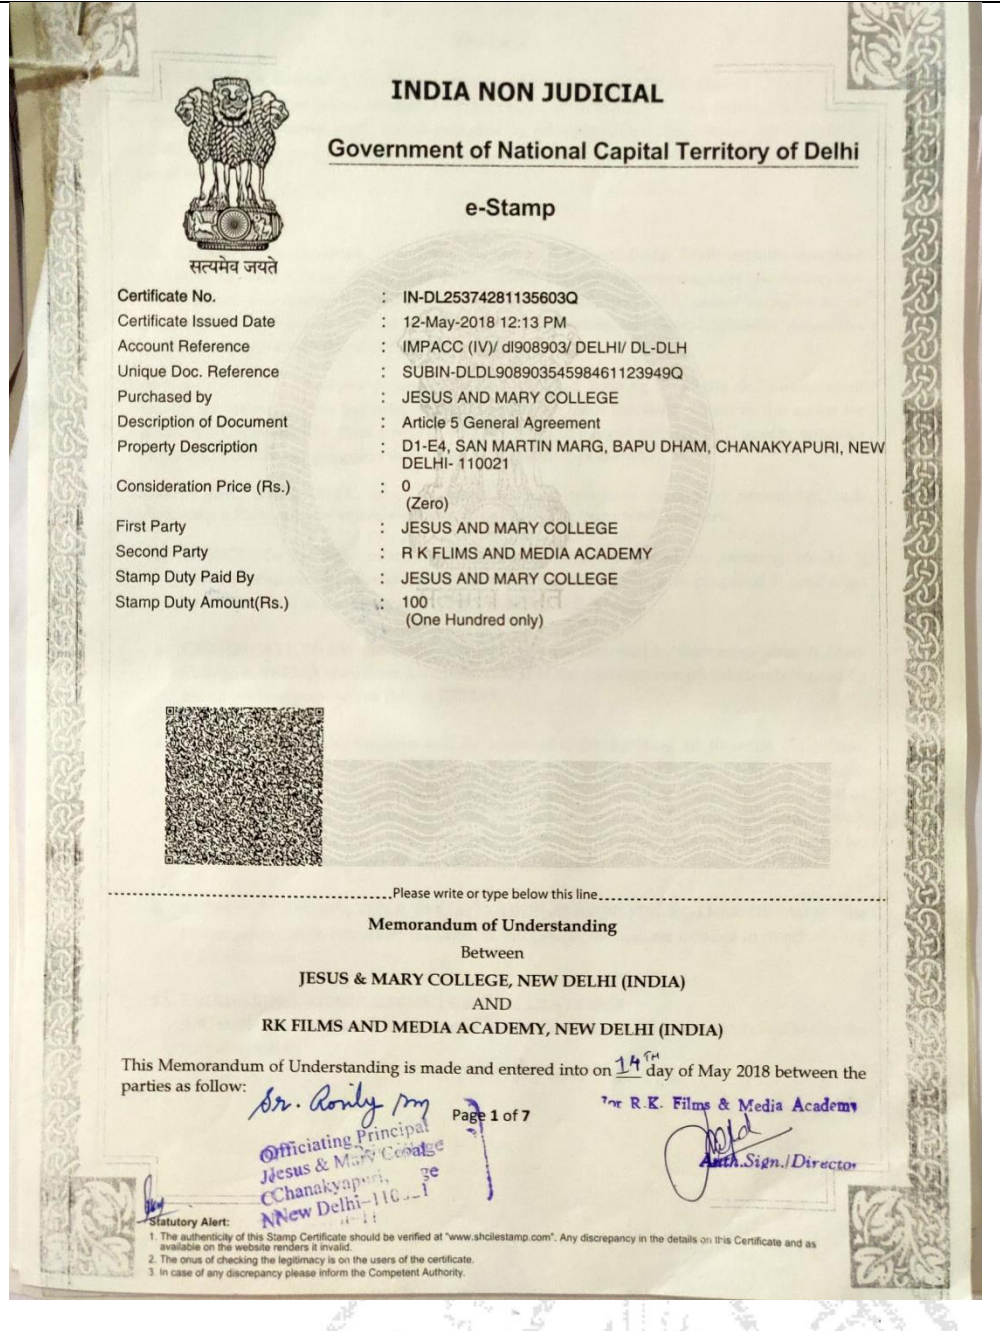 INDIA NON JUDICIAL
Government of National Capital Territory of Delhi
e-Stamp
सत्यमेव जयते
Certificate No. : IN-DL25374281135603Q
Certificate Issued Date : 12-May-2018 12:13 PM
Account Reference : IMPACC (IV)/ dl908903/ DELHI/ DL-DLH
Unique Doc. Reference : SUBIN-DLDL90890354598461123949Q
Purchased by : JESUS AND MARY COLLEGE
Description of Document : Article 5 General Agreement
Property Description : D1-E4, SAN MARTIN MARG, BAPU DHAM, CHANAKYAPURI, NEW
DELHI- 110021
Consideration Price (Rs.) : 0
(Zero)
First Party : JESUS AND MARY COLLEGE
Second Party : R K FLIMS AND MEDIA ACADEMY
Stamp Duty Paid By : JESUS AND MARY COLLEGE
Stamp Duty Amount(Rs.) : 100
(One Hundred only)
Please write or type below this line
Memorandum of Understanding
Between
JESUS & MARY COLLEGE, NEW DELHI (INDIA)
AND
RK FILMS AND MEDIA ACADEMY, NEW DELHI (INDIA)
This Memorandum of Understanding is made and entered into on 14TH day of May 2018 between the
parties as follow:
Page 1 of 7
For R.K. Films & Media Academy
Auth.Sign./Director
Officiating Principal
Jesus & Mary College
Chanakyapuri,
New Delhi-
Statutory Alert:
1. The authenticity of this Stamp Certificate should be verified at "www.shcilestamp.com". Any discrepancy in the details on this Certificate and as
available on the website renders it invalid.
2. The onus of checking the legitimacy is on the users of the certificate.
3. In case of any discrepancy please inform the Competent Authority.